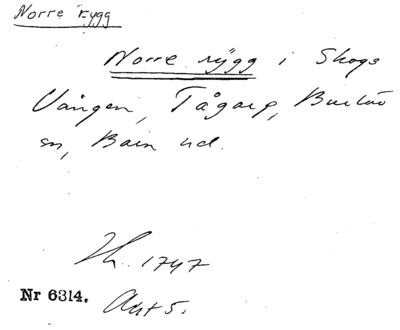 Norre rygg
Norre rygg i Skogs
Vången, Tågarp, Burlöv
sn, Bara hd.
Lh. 1747
Nr 6314. Akt 5.